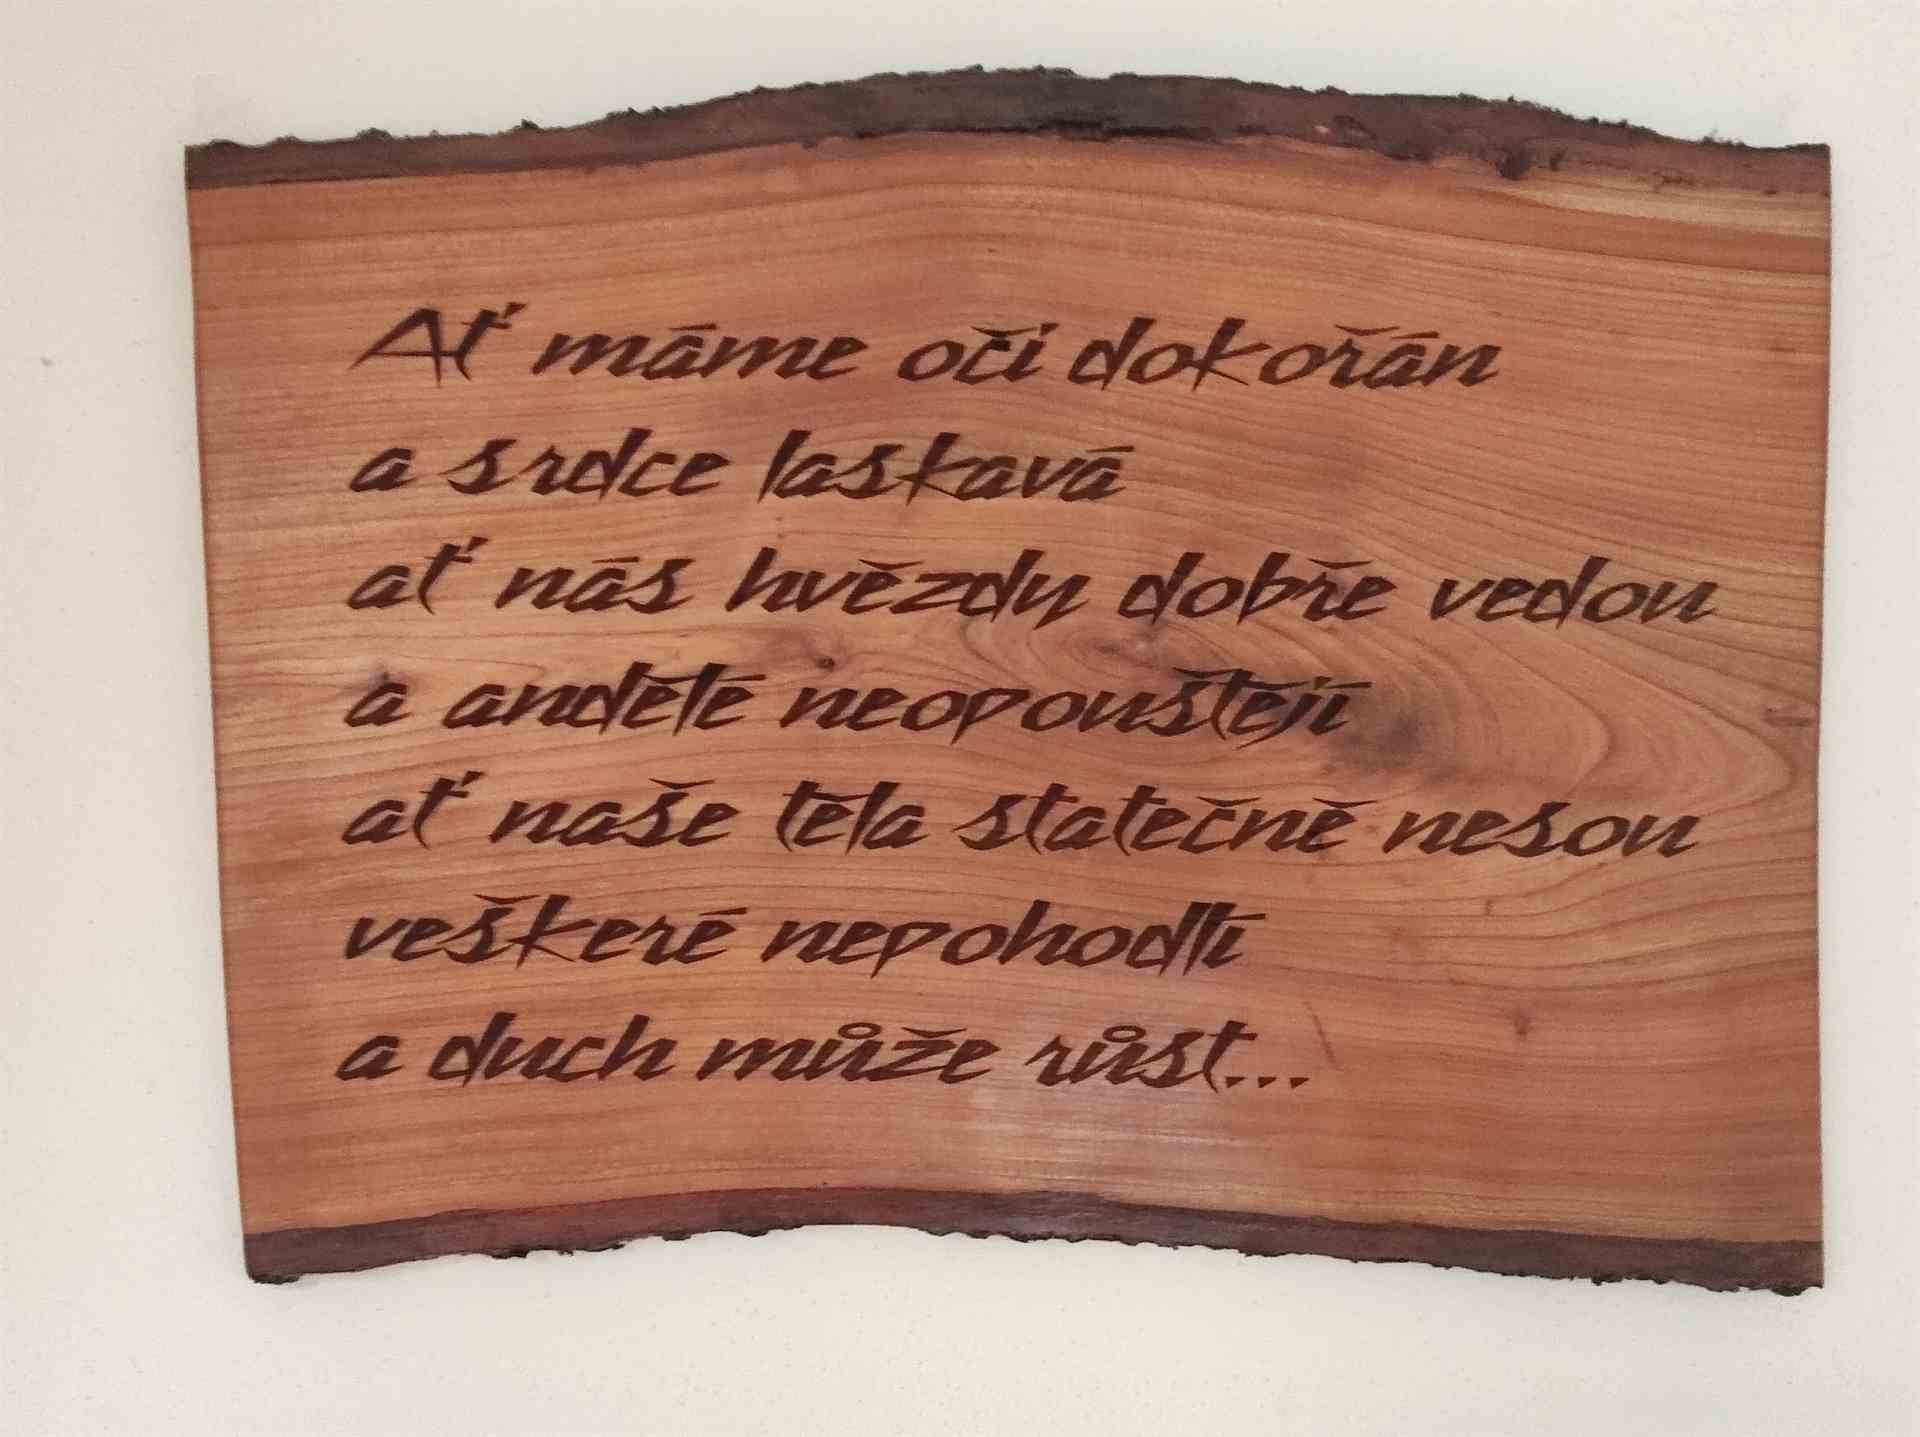 Ať máme oči dokořán
a srdce laskavá
ať nás hvězdy dobře vedou
a andělé neopouštějí
ať naše těla statečně nesou
veškeré nepohodlí
a duch může růst...